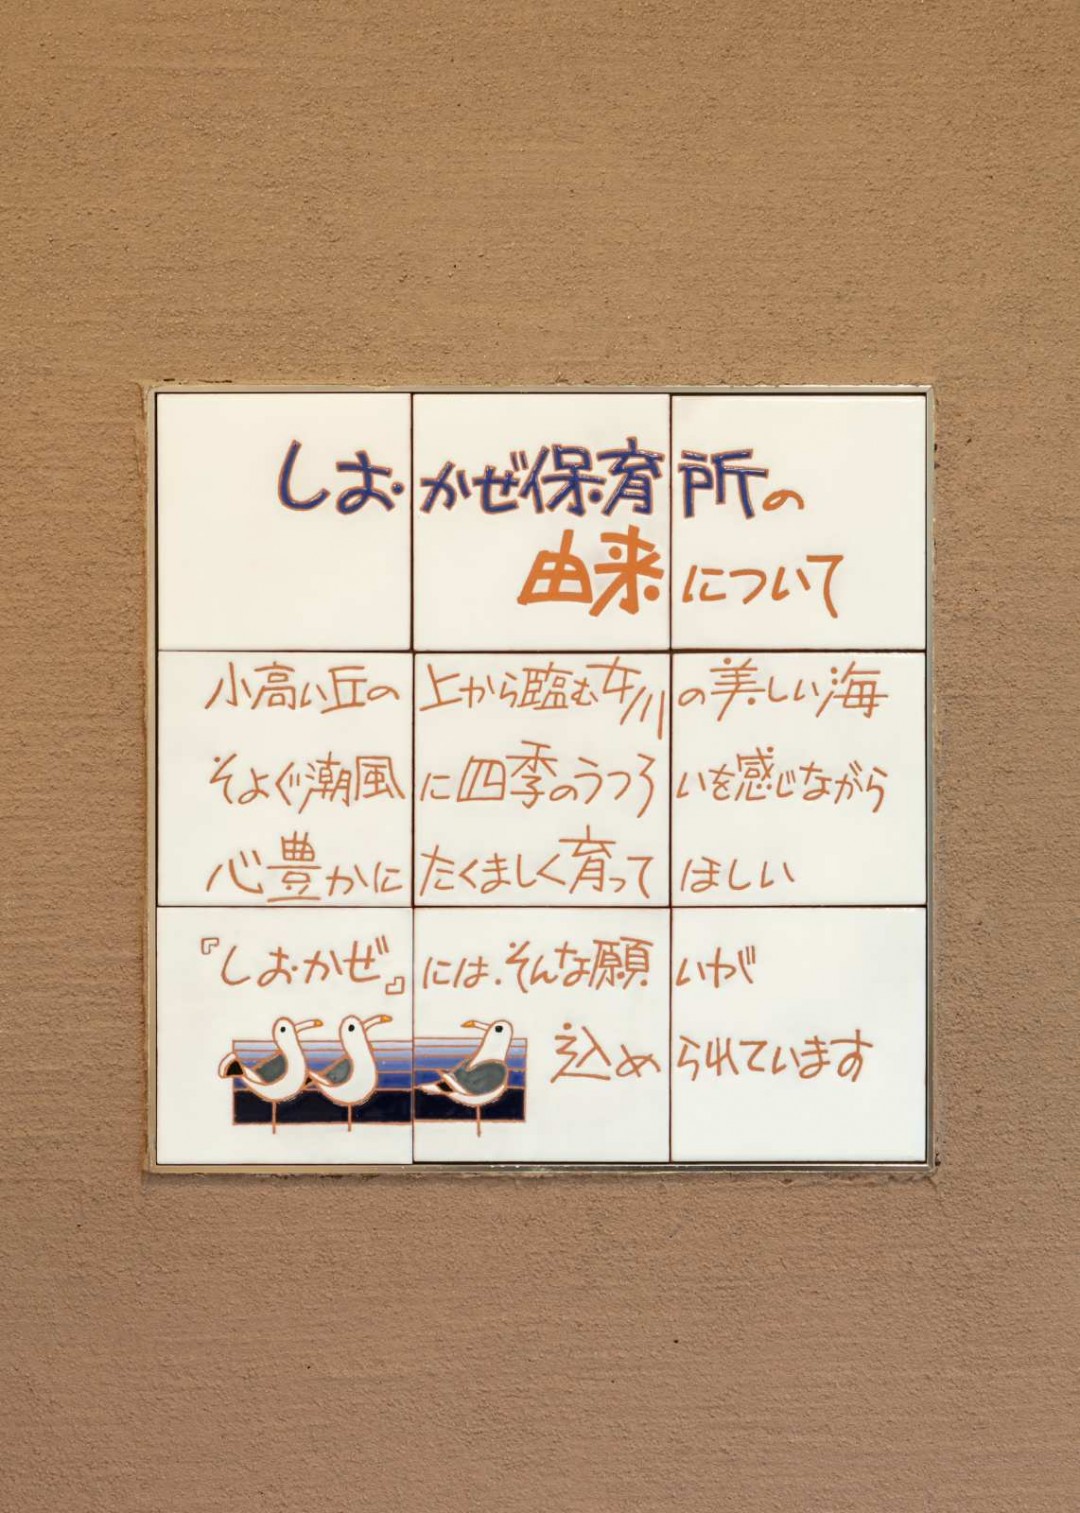 しおかぜ保育所の
由来について
小高い丘の上から臨む女川の美しい海
そよぐ潮風に四季のうつろいを感じながら
心豊かにたくましく育ってほしい
『しおかぜ』には、そんな願いが
込められています